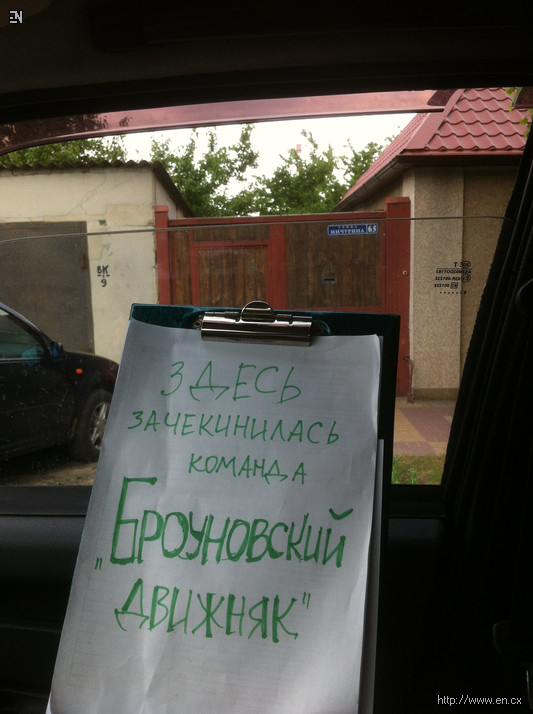 EN
УЛИЦА
МИЧУРИНА 65
ВК
9
ЗДЕСЬ
ЗАЧЕКИНИЛАСЬ
КОМАНДА
„БРОУНОВСКИЙ
ДВИЖНЯК"
http://www.en.cx